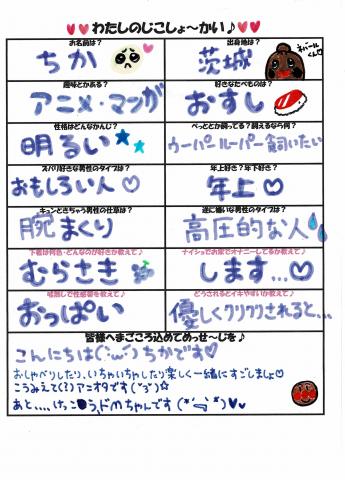 わたしのじこしょ〜かい♪
お名前は?
出身地は?
ちか
茨城
ネバールくん
趣味とかある?
好きなたべものは?
アニメ・マンガ
おすし
性格はどんなかんじ?
ぺっととか飼ってる?飼えるなら何?
明るい
ウーパールーパー飼いたい
ズバリ好きな男性のタイプは?
年上好き?年下好き?
おもしろい人♡
年上♡
キュンときちゃう男性の仕草は?
逆に嫌いな男性のタイプは?
腕まくり
高圧的な人
下着は何色・どんなのが好きか教えて♪
ナイショでお家でオナニーしてるか教えて♪
むらさき
します...♡
味見しで性感帯を教えて♪
どうされるとイキやすいか教えて♪
おっぱい
優しくクリクリされると...
皆様へまごころ込めてめっせ〜じを♪
こんにちは(´;ω;`)ちかです♡
おしゃべりしたり、いちゃいちゃしたり楽しく一緒にすごしましょ♡
こうみえて(?)アニオタです(˘³˘)☆
あと....けっこう、ドMちゃんです